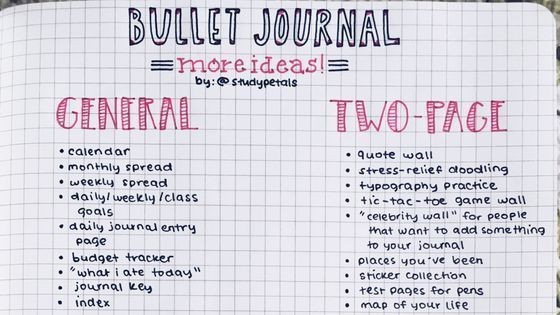 BULLET JOURNAL
more ideas!
by: @studypetals
GENERAL
• calendar
• monthly spread
• weekly spread
• daily/weekly/class
goals
• daily journal entry
page
• budget tracker
• "what i ate today"
• journal key
• index
TWO-PAGE
• quote wall
• stress-relief doodling
• typography practice
• tic-tac-toe game wall
• "celebrity wall" for people
that want to add something
to your journal
• places you've been
• sticker collection
• test pages for pens
• map of your life